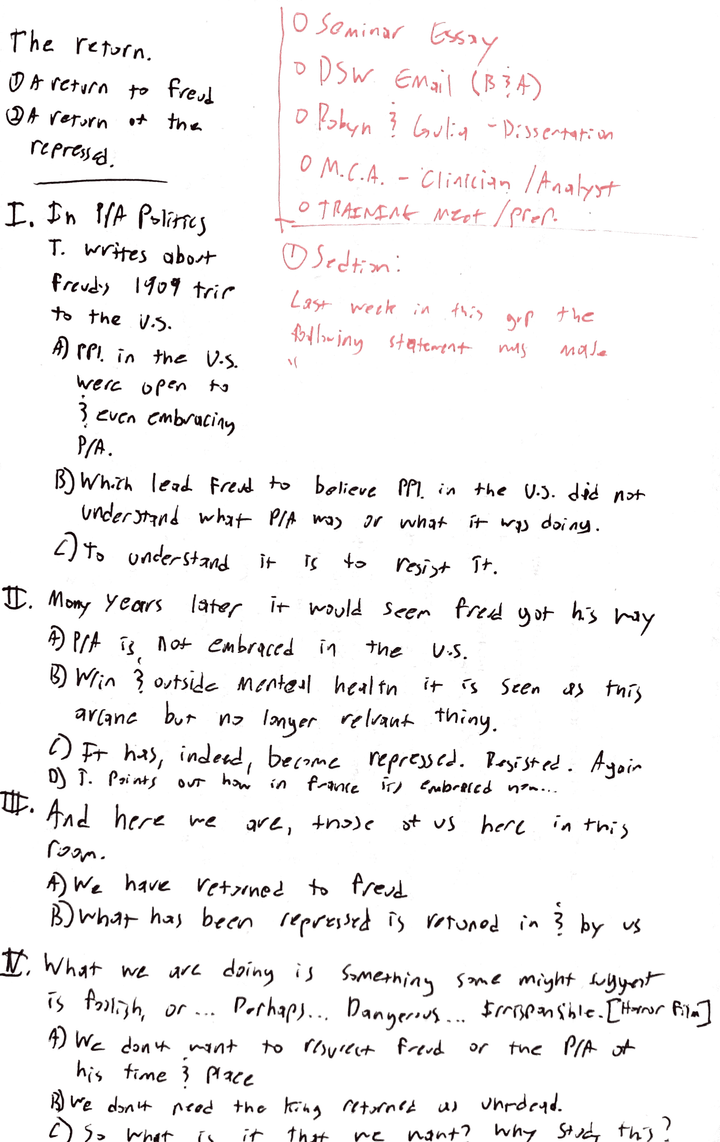 The return.
① A return to Freud
② A return of the
repressed.
I. In P/A Politics
T. writes about
Freud's 1909 trip
to the U.S.
A) PPl. in the U.S.
were open to
& even embracing
P/A.
B) Which lead Freud to believe PPl. in the U.S. did not
understand what P/A was or what it was doing.
C) To understand it is to resist it.
II. Many years later it would seem Freud got his way
A) P/A is not embraced in the U.S.
B) W/in & outside mental health it is seen as this
arcane but no longer relvant thing.
C) It has, indeed, become repressed. Resisted. Again
D) T. Points out how in France it's embraced now...
III. And here we are, those of us here in this
room.
A) We have returned to Freud
B) What has been repressed is retuned in & by us
IV. What we are doing is something some might suggest
is foolish, or... Perhaps... Dangerous... Irresponsible. [Horror Film]
A) We don't want to resurect Freud or the P/A of
his time & place
B) We don't need the king returned as undead.
C) So what is it that we want? Why study this?
O Seminar Essay
O DSW Email (B & A)
O Robyn & Giulia - Dissertation
O M.C.A. - Clinician / Analyst
O TRAINING meet / prep.
① Section:
Last week in this grp the
following statement was made
"